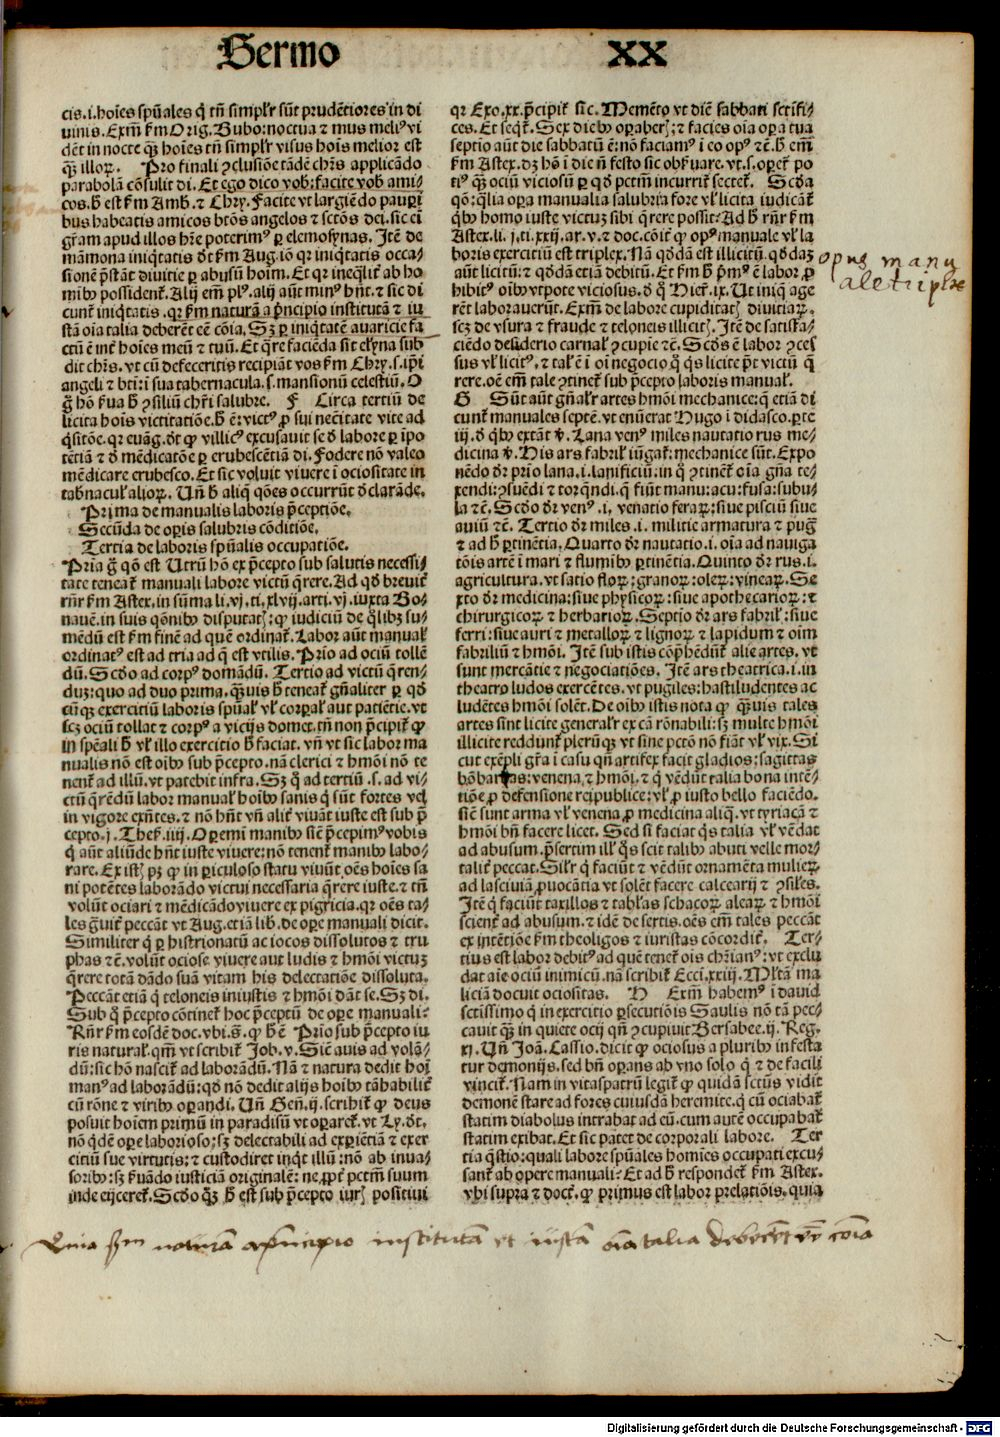 Sermo XX
cis.i.hoīes spūales q̄ tn̄ simplr̄ sūt prudētiores in di
uinis. Exm̄ ẜm Orig. Bubo:noctua ⁊ mus meliꝰ vi
dēt in nocte qꝫ hoīes tn̄ simplr̄ visus hoīs melior est
qꝫ illoꝝ. Pro finali ꝯclusiōe tādē chr̄s applicādo
parabolā cōsulit di. Et ego dico vob̄:facite vob̄ ami/
cos. h̄ est ẜm Amb. ⁊ Chry. Facite vt largiēdo pauꝑi
bus habeatis amicos btōs angelos ⁊ sctōs dei. sic eī
gr̄am apud illos hr̄e poterimꝰ ꝑ elemosynas. Itē de
māmona iniqtatis dr̄ ẜm Aug. iō qr iniqtatis occa/
sionē p̄stāt diuitie ꝑ abusū hoīm. Et qr ineqlit̄ ab ho
mībꝰ possident̄. Alij em̄ plꝰ. alij aūt minꝰ hn̄t. ⁊ sic di
cunt̄ iniqtatis. qr ẜm naturā a pͥncipio institutā ⁊ iu
stā oīa talia deberēt eē cōia. Sꝫ ꝑ iniqtatē auaricie fa
ctū ē int̄ hoīes meū ⁊ tuū. Et q̄re faciēda sit elyna sub
dit chr̄s. vt cū defeceritis recipiāt vos ẜm Chry. s. ip̄i
angeli ⁊ bti:ī sua tabernacula. s. mansionū celestiū. O
g̊ hō ẜua h̄ ꝯsiliū chrī salubre. F Circa tertiū de
licita hoīs victitatiōe. h̄ ē: victꝰ ꝓ sui necītate vite ad
q̄sitōe. qr euāg. dr̄ ꝙ villicꝰ excusauit se d̄ labore ꝑ īpo
tētiā ⁊ d̄ mēdicatōe ꝑ erubescētiā di. Fodere nō valeo
mēdicare erubesco. Et sic voluit viuere ī ociositate in
tabnacul̄ alioꝝ. Un̄ h̄ aliq̄ qōes occurrūt d̄clarāde.
Prima de manualis laboris p̄ceptiōe.
Secūda de oꝑis salubris cōditiōe.
Tertia de laboris spūalis occupatiōe.
Pria g̊ qō est Utrū hō ex p̄cepto sub salutis necessi/
tate teneat̄ manuali labore victū q̄rere. Ad qd̄ breuit̄
rn̄r ẜm Astex. in sūma li. vj. ti. xlvij. arti. vj. iuxta Bo/
nauē. in suis qōnibꝰ disputatꝭ: ꝙ iudiciū de q̄libꝫ su/
mēdū est ẜm finē ad quē ordinat̄. Labor aūt manual̄
ordinatꝰ est ad tria ad q̄ est vtilis. Prīo ad ociū tollē
dū. Scd̄o ad corpꝰ domādū. Tertio ad victū q̄ren/
duꝫ: quo ad duo prima. q̄ꝫuis h̄ teneat̄ gn̄aliter ꝑ qd̄
cūqꝫ exercitiū laboris spūal̄ vl̄ corꝑal̄ aut patiētie. vt
scꝫ ociū tollat ⁊ corpꝰ a vicijs domet. tn̄ non p̄cipit̄ ꝙ
in spēali h̄ vl̄ illo exercitio h̄ faciat. vn̄ vt sic labor ma
nualis nō est oībꝰ sub p̄cepto. nā clerici ⁊ hmōi nō te
nent̄ ad illū. vt patebit infra. Sꝫ q̄ ad tertiū. s. ad vi/
ctū q̄rēdū labor manual̄ hoībꝰ sanis q̄ sūt fortes vel
in vigore exn̄tes. ⁊ nō hn̄t vn̄ alit̄ viuāt iuste est sub p̄
cepto. j. Thes̄. iiij. Oꝑemī manibꝰ siē p̄cepimꝰ vobis
q̄ aūt aliūde hn̄t iuste viuere: nō tenent̄ manibꝰ labo/
rare. Ex istꝭ pꝫ ꝙ in ꝑiculoso statu viuūt oēs hoīes sa
ni potētes laborādo victui necessaria q̄rere iuste. ⁊ tn̄
volūt ociari ⁊ mēdicādo viuere ex pigricia. qr oēs ta/
les g̊uit̄ peccāt vt Aug. etiā lib. de oꝑe manuali dicit.
Similiter q̄ ꝑ histrionatū ac iocos dissolutos ⁊ tru
phas ⁊ē. volūt ociose viuere aut ludis ⁊ hmōi victuꝫ
q̄rere totā dādo suā vitam his delectatiōe dissoluta.
Peccāt etiā q̄ teloneis iniustis ⁊ hmōi dāt se. Sꝫ di.
Sub q̄ p̄cepto cōtinet̄ hoc p̄ceptū de oꝑe manuali:
Rn̄t̄ ẜm eosdē doc. vbi. s̄. ꝙ h̄ ē Prīo sub p̄cepto iu
ris natural̄. qm̄ vt scribit̄ Job. v. Siē auis ad volā/
dū: sic hō nascit̄ ad laborādū. Nā ⁊ natura dedit hoī
manꝰ ad laborādū: qd̄ nō dedit alijs hoībꝰ tā habilit̄
cū rōne ⁊ viribꝰ oꝑandi. Un̄ Gen̄. ij. scribit̄ ꝙ deus
posuit hoīem primū in paradisū vt oꝑaret̄. vt Ly. dr̄.
nō qdē oꝑe laborioso; sꝫ delectabili ad exꝑiētiā ⁊ exer
citiū sue virtutis; ⁊ custodiret inqt illū: nō ab inua/
soribꝰ; sꝫ ẜuādo iusticiā originalē: ne ꝓpt̄ pctm̄ suum
inde eijceret̄. Scd̄o qꝫ h̄ est sub p̄cepto iurꝭ positiui
qr Exo. xx. p̄cipit̄ sic. Memēto vt diē sabbati sctīfi/
ces. Et seqt̄. Sex diebꝰ oꝑaberꝭ: ⁊ facies oīa oꝑa tua
septīo aūt die sabbatū ē: nō faciamꝰ i eo opꝰ ⁊ē. h̄ em̄
ẜm Astex. dꝫ hō ī diē n̄ festo sic obẜuare. vt. s. oꝑet̄ po
tiꝰ q̄ꝫ ociū viciosuꝫ ꝑ qd̄ pctm̄ incurrit̄ sectet̄. Scd̄a
qō: q̄lia oꝑa manualia salubria fore vl̄ licita iudicāt̄
q̄bꝰ homo iuste victuꝫ sibi q̄rere possit: Ad h̄ rn̄r ẜm
Astex. li. j. ti. xxij. ar. v. ⁊ doc. cōit̄ ꝙ opꝰ manuale vl̄ la
boris exercitiū est triplex. Nā qd̄dā est illicitū. qd̄daꝫ
aūt licitū: ⁊ qd̄dā etiā debitū. Et ẜm h̄ pͥmꝰ ē labor ꝓ
hibitꝰ oībꝰ vtpote viciosus. d̄ q̄ Hier̄. ix. Ut iniq̄ age
rēt laborauerūt. Exm̄. de labore cupiditatꝭ diuitiaꝝ.
scꝫ de vsura ⁊ fraude ⁊ teloneis illicitꝭ. Itē de satisfa/
ciēdo desiderio carnal̄ ꝯcupie ⁊ē. Scd̄s ē labor ꝯces
sus vl̄ licitꝰ. ⁊ tal̄ ē i oī negocio q̄ qs licite pt̄ victū q̄
rere. oē em̄ tale ꝯtinet̄ sub p̄cepto laboris manual̄.
G Sūt aūt gn̄al̄r artes hmōi mechanice: q̄ etiā di
cunt̄ manuales septē. vt enūerat Hugo ī didasco. ꝑte
iij. d̄ q̄bꝰ extāt v̄. Lana venꝰ miles nautatio rus me/
dicina v̄. His ars fabril̄ iūgat̄: mechanice sūt. Expo
nēdo dr̄ prīo lana. i. lanificiū. in q̄ ꝯtinet̄ oīa gn̄a te/
xendi: ꝯsuēdi ⁊ torq̄ndi. q̄ fiūt manu: acu: fusa: subu/
la ⁊ē. Scd̄o dr̄ venꝰ. i. venatio feraꝝ: siue pisciū siue
auiū ⁊ē. Tertio dr̄ miles. i. militie armatura ⁊ pug̊
⁊ ad h̄ ꝑtinētia. Quarto dr̄ nautatio. i. oīa ad nauiga
tōis artē i mari ⁊ flumībꝰ ꝑtinētia. Quinto dr̄ rus. i.
agricultura. vt satio floꝝ: granoꝝ: oleꝝ: vineaꝝ. Se
xto dr̄ medicina: siue physicoꝝ: siue apothecarioꝝ: ⁊
chirurgicoꝝ ⁊ herbarioꝝ. Septīo dr̄ ars fabril̄: siue
ferri: siue auri ⁊ metalloꝝ ⁊ lignoꝝ ⁊ lapidum ⁊ oīm
fabriliū ⁊ hmōi. Itē sub istis cōp̄hēdūt̄ alie artes. vt
sunt mercātie ⁊ negociatiōes. Itē ars theatrica. i. in
theatro ludos exercētes. vt pugiles: hastiludentes ac
ludētes hmōi solēt. De oībꝰ istis nota ꝙ q̄ꝫuis tales
artes sint licite general̄r ex cā rōnabili: sꝫ multe hmōi
illicite reddunt̄ plerūqꝫ vt sine pctō nō fiāt vl̄ vix. Si
cut exēpli gr̄a i casu qn̄ artifex facit gladios: sagittas
bōbardas: venena. ⁊ hmōi. ⁊ q̄ vēdūt talia bona intē/
tiōe ꝓ defensione reipublice: vl̄ ꝓ iusto bello faciēdo.
siē sunt arma vl̄ venena ꝓ medicina aliq̄. vt tyriaca ⁊
hmōi hn̄ facere licet. Sed si faciat qs talia vl̄ vēdat
ad abusum. p̄sertim ill̄ qs scit talibꝰ abuti velle mor/
talit̄ peccat. Silr̄ q̄ faciūt ⁊ vēdūt ornamēta mulieꝝ
ad lasciuiā ꝓuocātia vt solēt facere calcearij ⁊ ꝯsiles.
Itē q̄ faciūt taxillos ⁊ tabl̄as schacoꝝ aleaꝝ ⁊ hmōi
scient̄ ad abusum. ⁊ idē de sertis. oēs em̄ tales peccāt
ex intētiōe ẜm theologos ⁊ iuristas cōcordit̄. Ter/
tius est labor debitꝰ ad quē tenet̄ ois chr̄ianꝰ: vt exclu
dat aīe ociū inimicū. nā scribit̄ Ecci. xxiij. Mltā ma
liciā docuit ociositas. H Exm̄ habemꝰ i dauid
sctissimo q̄ in exercitio ꝑsecutiōis Saulis nō tā pec/
cauit qꝫ in quiete ocij qn̄ ꝯcupiuit Bersabee. ij. Reg.
xj. Un̄ Joā. Cassio. dicit ꝙ ociosus a pluribꝰ infesta
tur demonijs. sed bn̄ oꝑans ab vno solo q̄ ⁊ de facili
vincit̄. Nam in vitaspatrū legit̄ ꝙ quidā sctūs vidit
demonē stare ad fores cuiusdā heremite. q̄ cū ociabat̄
statim diabolus intrabat ad eū. cum autē occupabat̄
statim exibat. Et sic patet de corporali labore. Ter
tia q̄stio: quali labore spūales homīes occupati excu/
sant̄ ab opere manuali: Et ad h̄ respondet̄ ẜm Astex.
vbi supra ⁊ doct̄. ꝙ primus est labor prelatiōis. quia
opus manu
ale triplex
Quia ẜm naturā a pͥncipio institutā et iustā oīa talia deberēt eē cōia
Digitalisierung gefördert durch die Deutsche Forschungsgemeinschaft - DFG